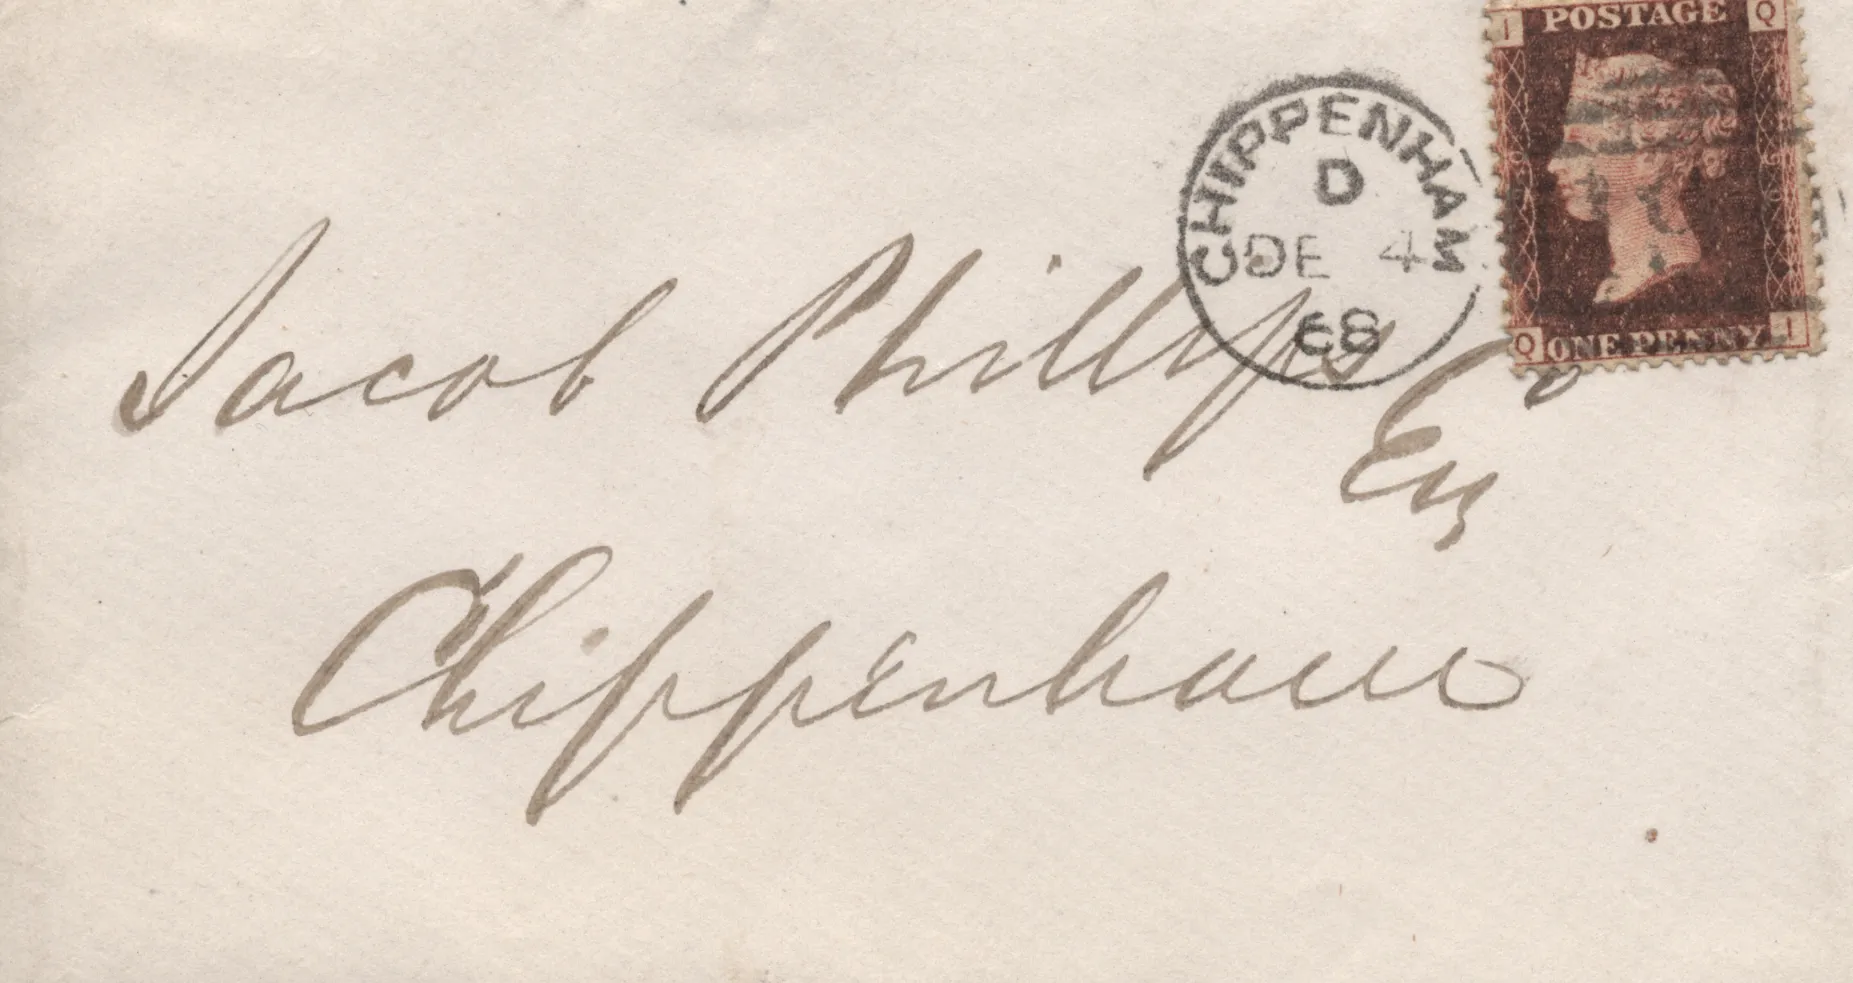 I POSTAGE Q
CHIPPENHAM
D
DE 4
68
Q ONE PENNY I
Jacob Phillips
Esq
Chippenham